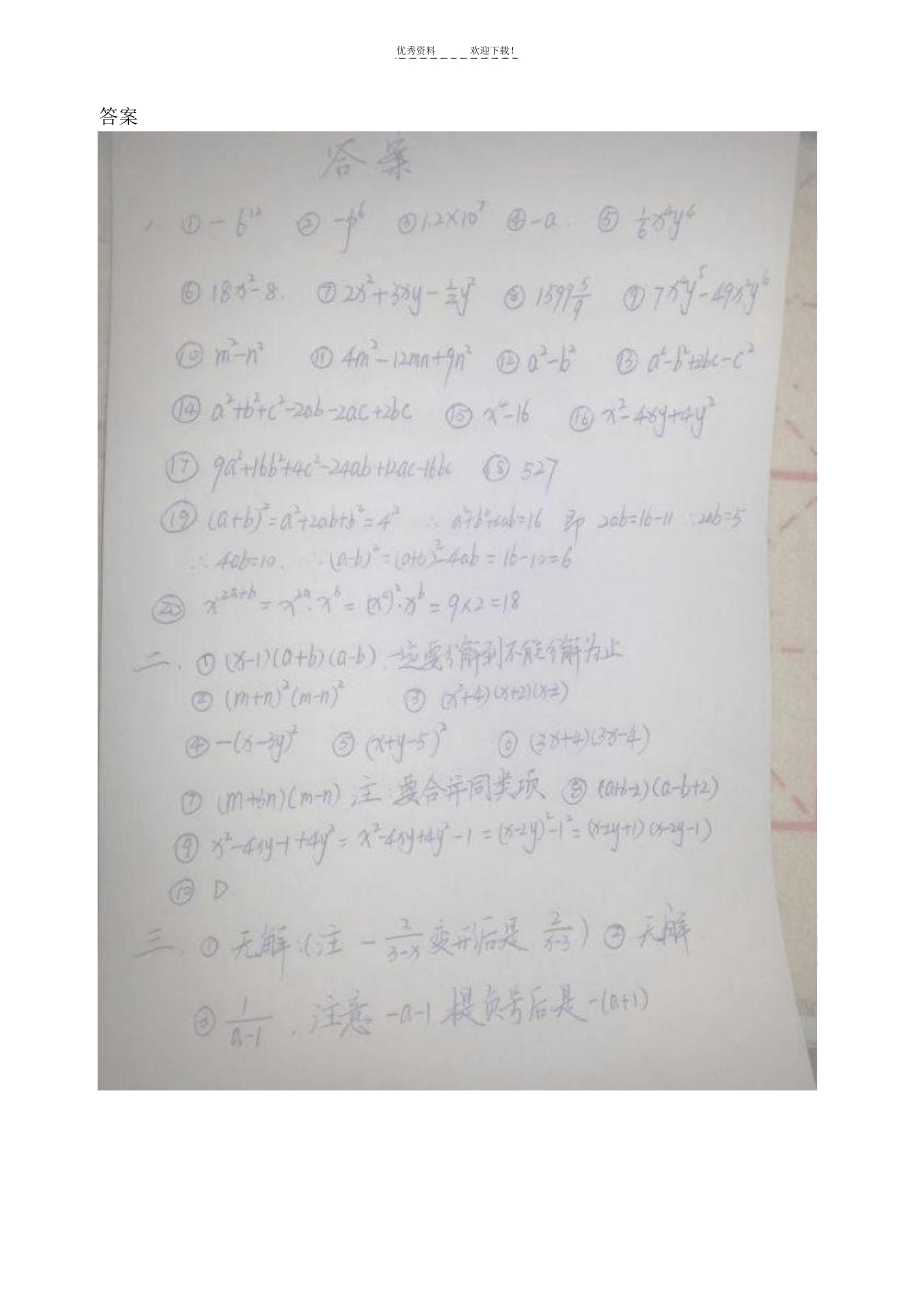 优秀资料 欢迎下载！
答案
答案
① -b¹² ② -p⁶ ③ 1.2×10⁷ ④ -a. ⑤ 1/6x⁴y⁴
⑥ 18x²-8. ⑦ 2x²+3xy-1/2y² ⑧ 1599 5/9 ⑨ 7x⁴y⁵-49x²y⁶
⑩ m²-n² ⑪ 4m²-12mn+9n² ⑫ a²-b² ⑬ a²-b²+2bc-c²
⑭ a²+b²+c²-2ab-2ac+2bc ⑮ x⁴-16 ⑯ x²-4xy+4y²
⑰ 9a²+16b²+4c²-24ab+12ac-16bc ⑱ 527
⑲ (a+b)²=a²+2ab+b²=4² ∴ a²+b²+2ab=16 即 2ab=16-11 ∴2ab=5
∴4ab=10. ∴(a-b)²=(a+b)²-4ab=16-10=6
⑳ x²ᵃ⁺ᵇ=x²ᵃ·xᵇ=(xᵃ)²·xᵇ=9×2=18
二. ① (x-1)(a+b)(a-b) 一定要分解到不能分解为止
② (m+n)²(m-n)² ③ (x²+4)(x+2)(x-2)
④ -(x-3y)² ⑤ (x+y-5)² ⑥ (3x+4)(3x-4)
⑦ (m+6n)(m-n) 注：要合并同类项 ⑧ (a+b-2)(a-b+2)
⑨ x²-4xy-1+4y²=x²-4xy+4y²-1=(x-2y)²-1²=(x-2y+1)(x-2y-1)
⑩ D.
三. ① 无解（注 -2/(3-x) 变形后是 2/(x-3)）② 无解
③ 1/(a-1). 注意 -a-1 提负号后是 -(a+1)